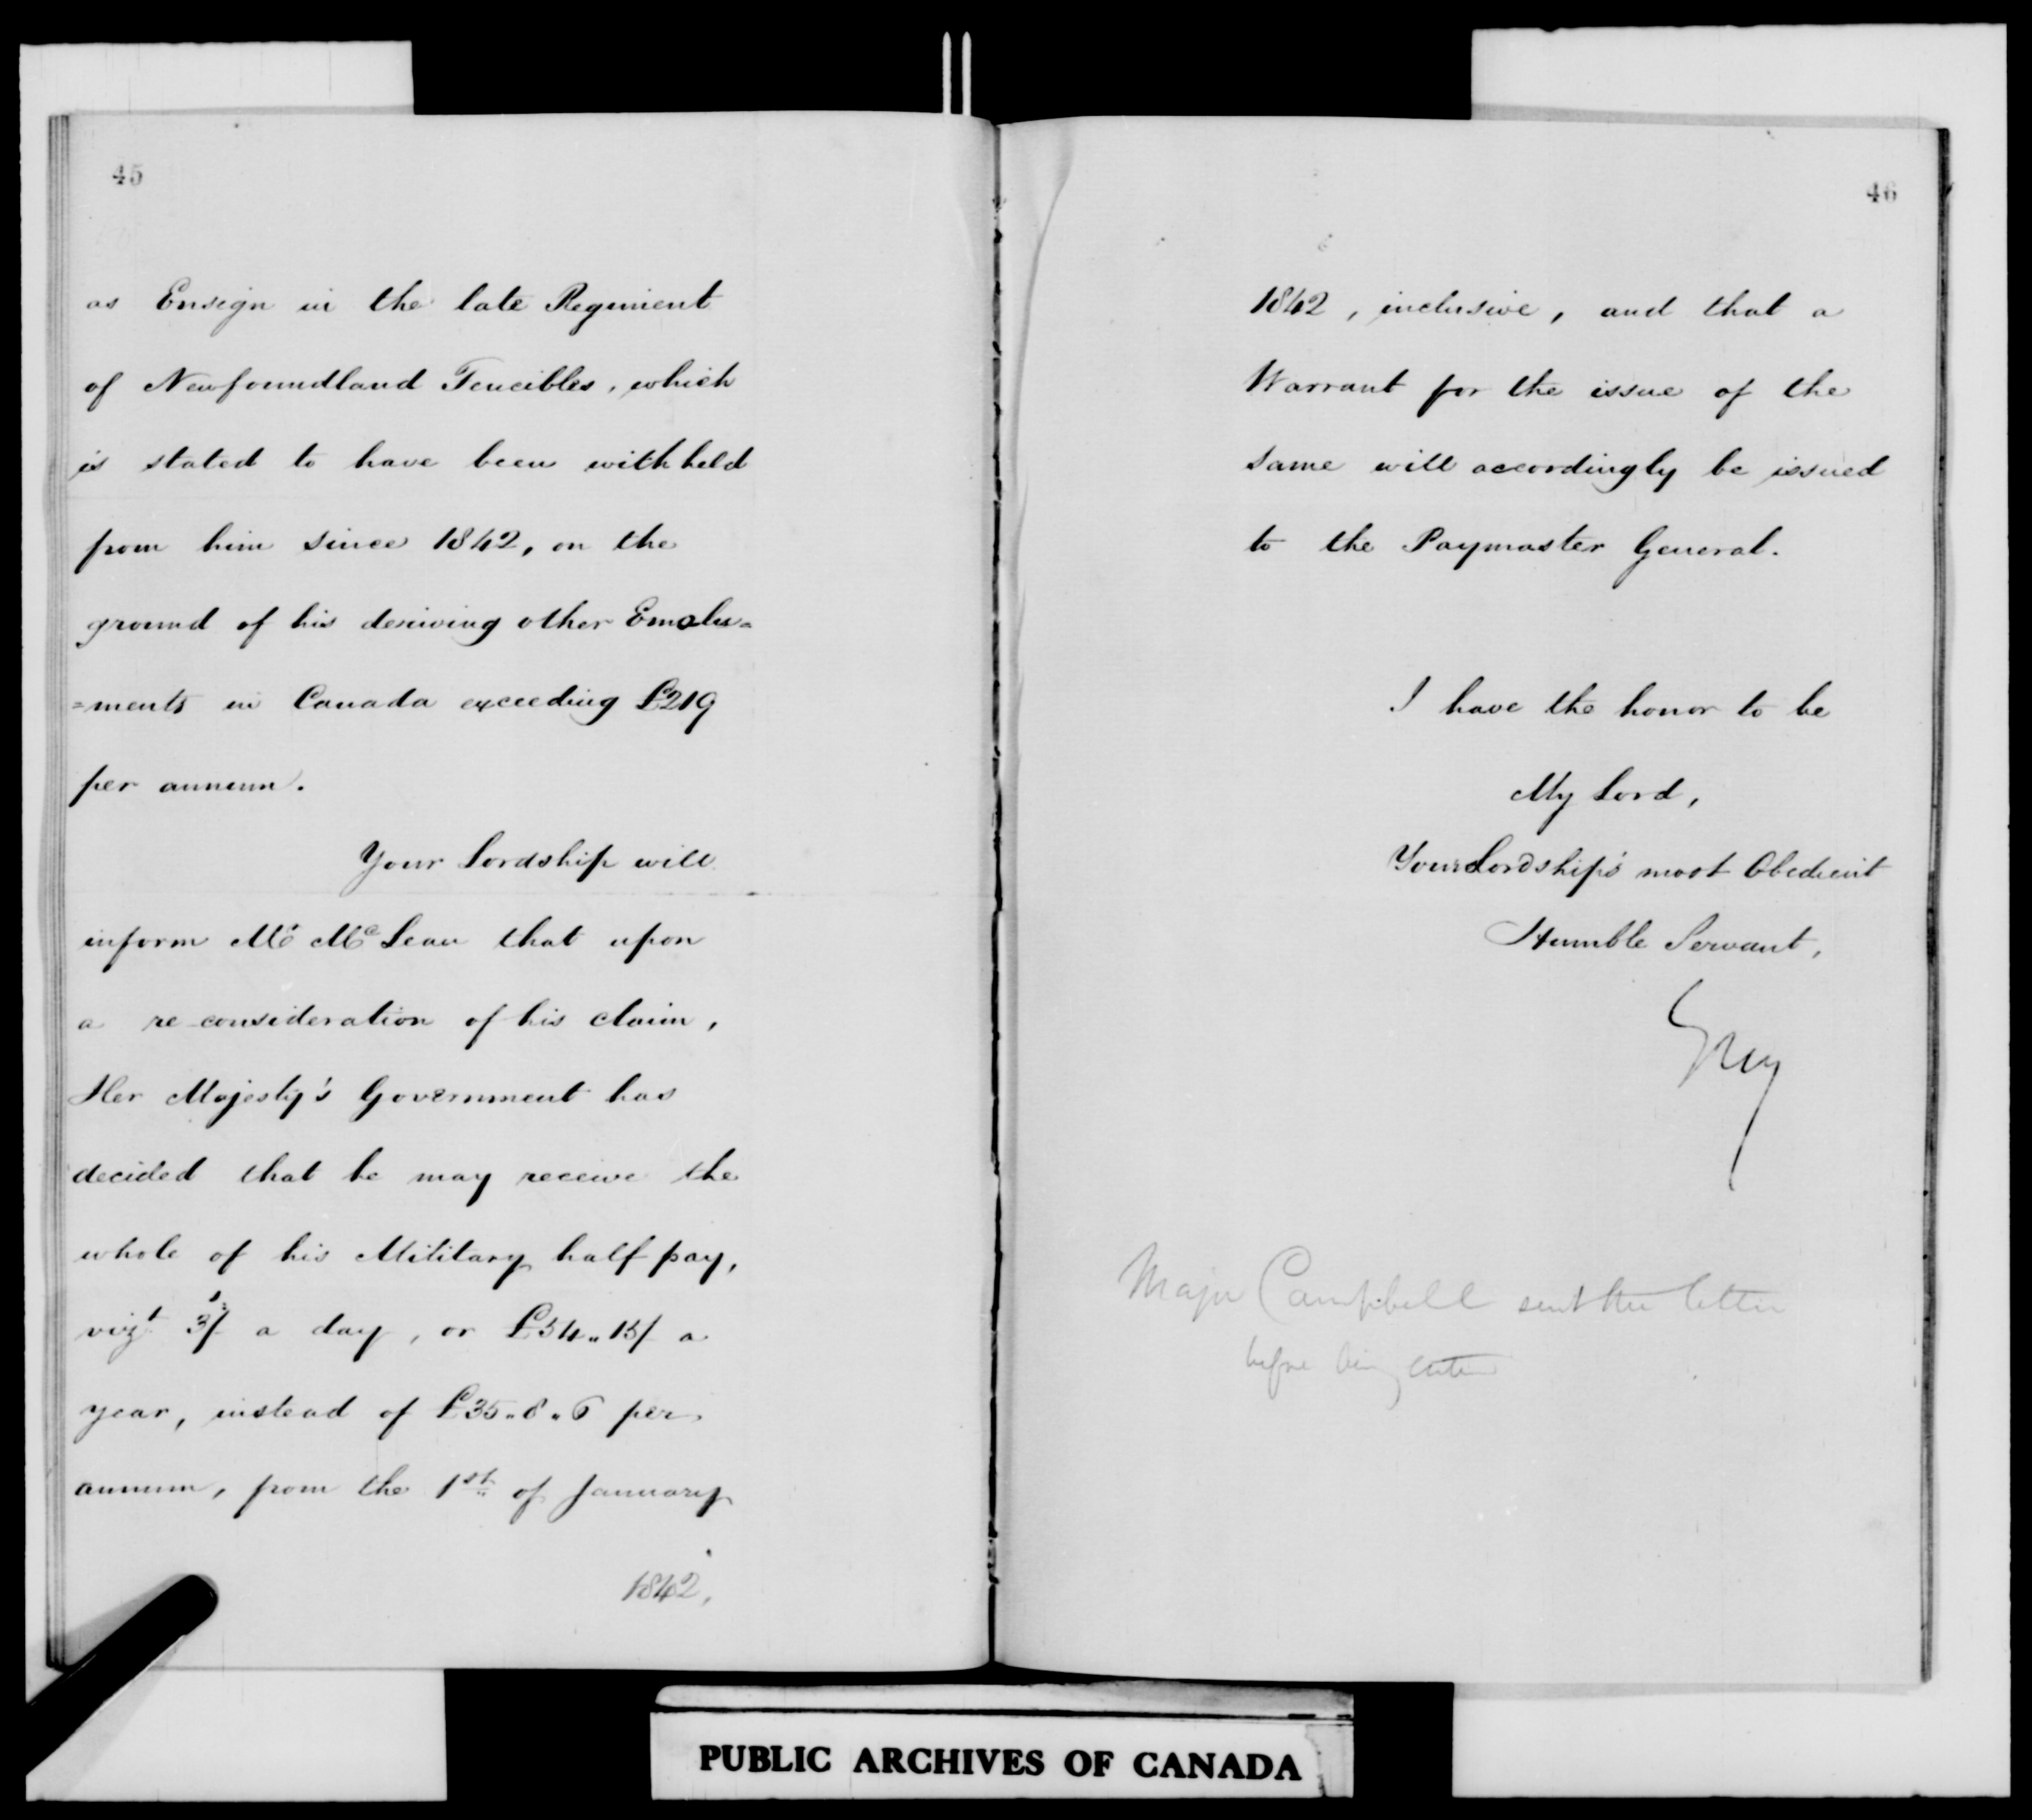 45
as Ensign in the late Regiment
of Newfoundland Fencibles, which
is stated to have been withheld
from him since 1842, on the
ground of his deriving other Emolu=
=ments in Canada exceeding £219
per annum.
Your Lordship will
inform Mr McLean that upon
a re-consideration of his claim,
Her Majesty's Government has
decided that he may receive the
whole of his Military half pay,
vizt 3s/ a day, or £54.. 15/ a
year, instead of £35..8..6 per
annum, from the 1st of January
1842,
46
1842, inclusive, and that a
Warrant for the issue of the
same will accordingly be issued
to the Paymaster General.
I have the honor to be
My Lord,
Your Lordship's most Obedient
Humble Servant,
Grey
Major Campbell sent the letter
before being
PUBLIC ARCHIVES OF CANADA